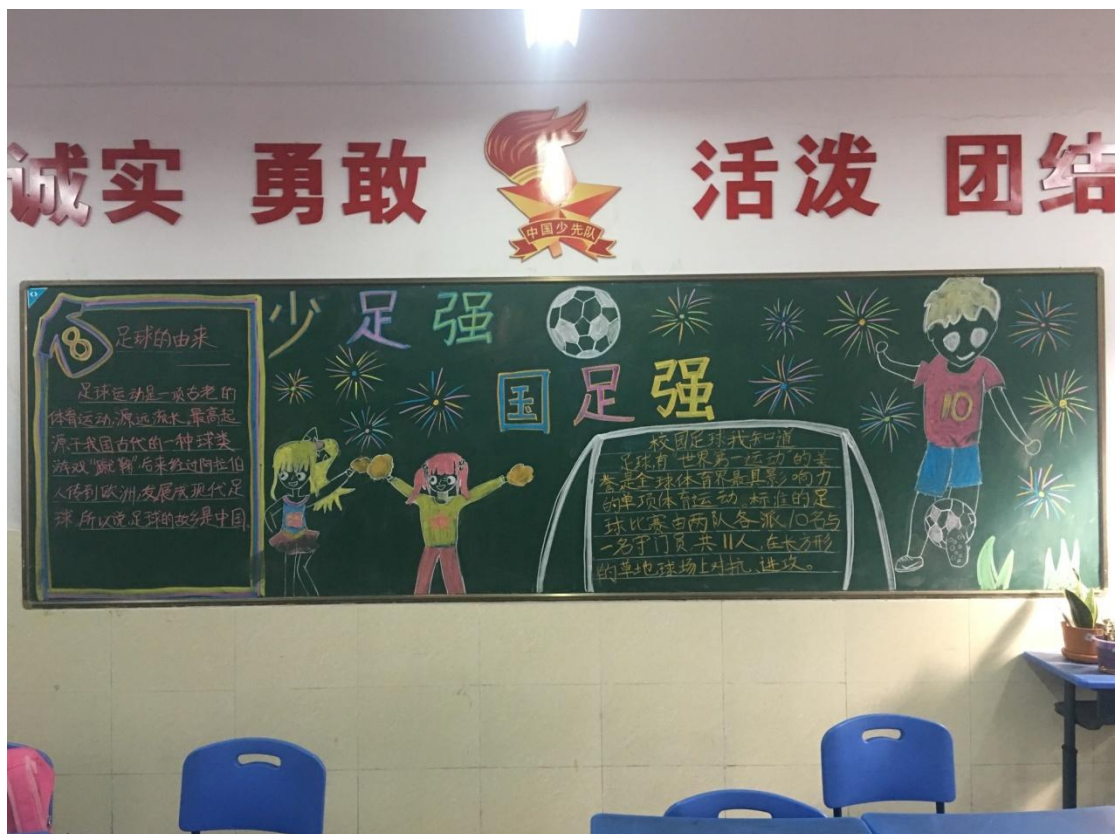 诚实 勇敢 活泼 团结
中国少先队
少足强
国足强
8
足球的由来
足球运动是一项古老的
体育运动,源远流长,最高起
源于我国古代的一种球类
游戏"蹴鞠"后来经过阿拉伯
人传到欧洲,发展成现代足
球,所以说,足球的故乡是中国.
校园足球我知道
足球有"世界第一运动"的美
誉是全球体育界最具影响力
的单项体育运动,标准的足
球比赛由两队各派10名与
一名守门员,共11人,在长方形
的草地球场上对抗、进攻。
10